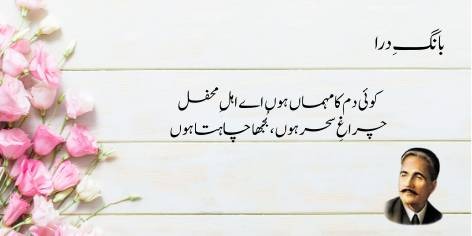 بانگِ درا
کوئی دم کا مہماں ہوں اے اہلِ محفل
چراغِ سحر ہوں، بُجھا چاہتا ہوں